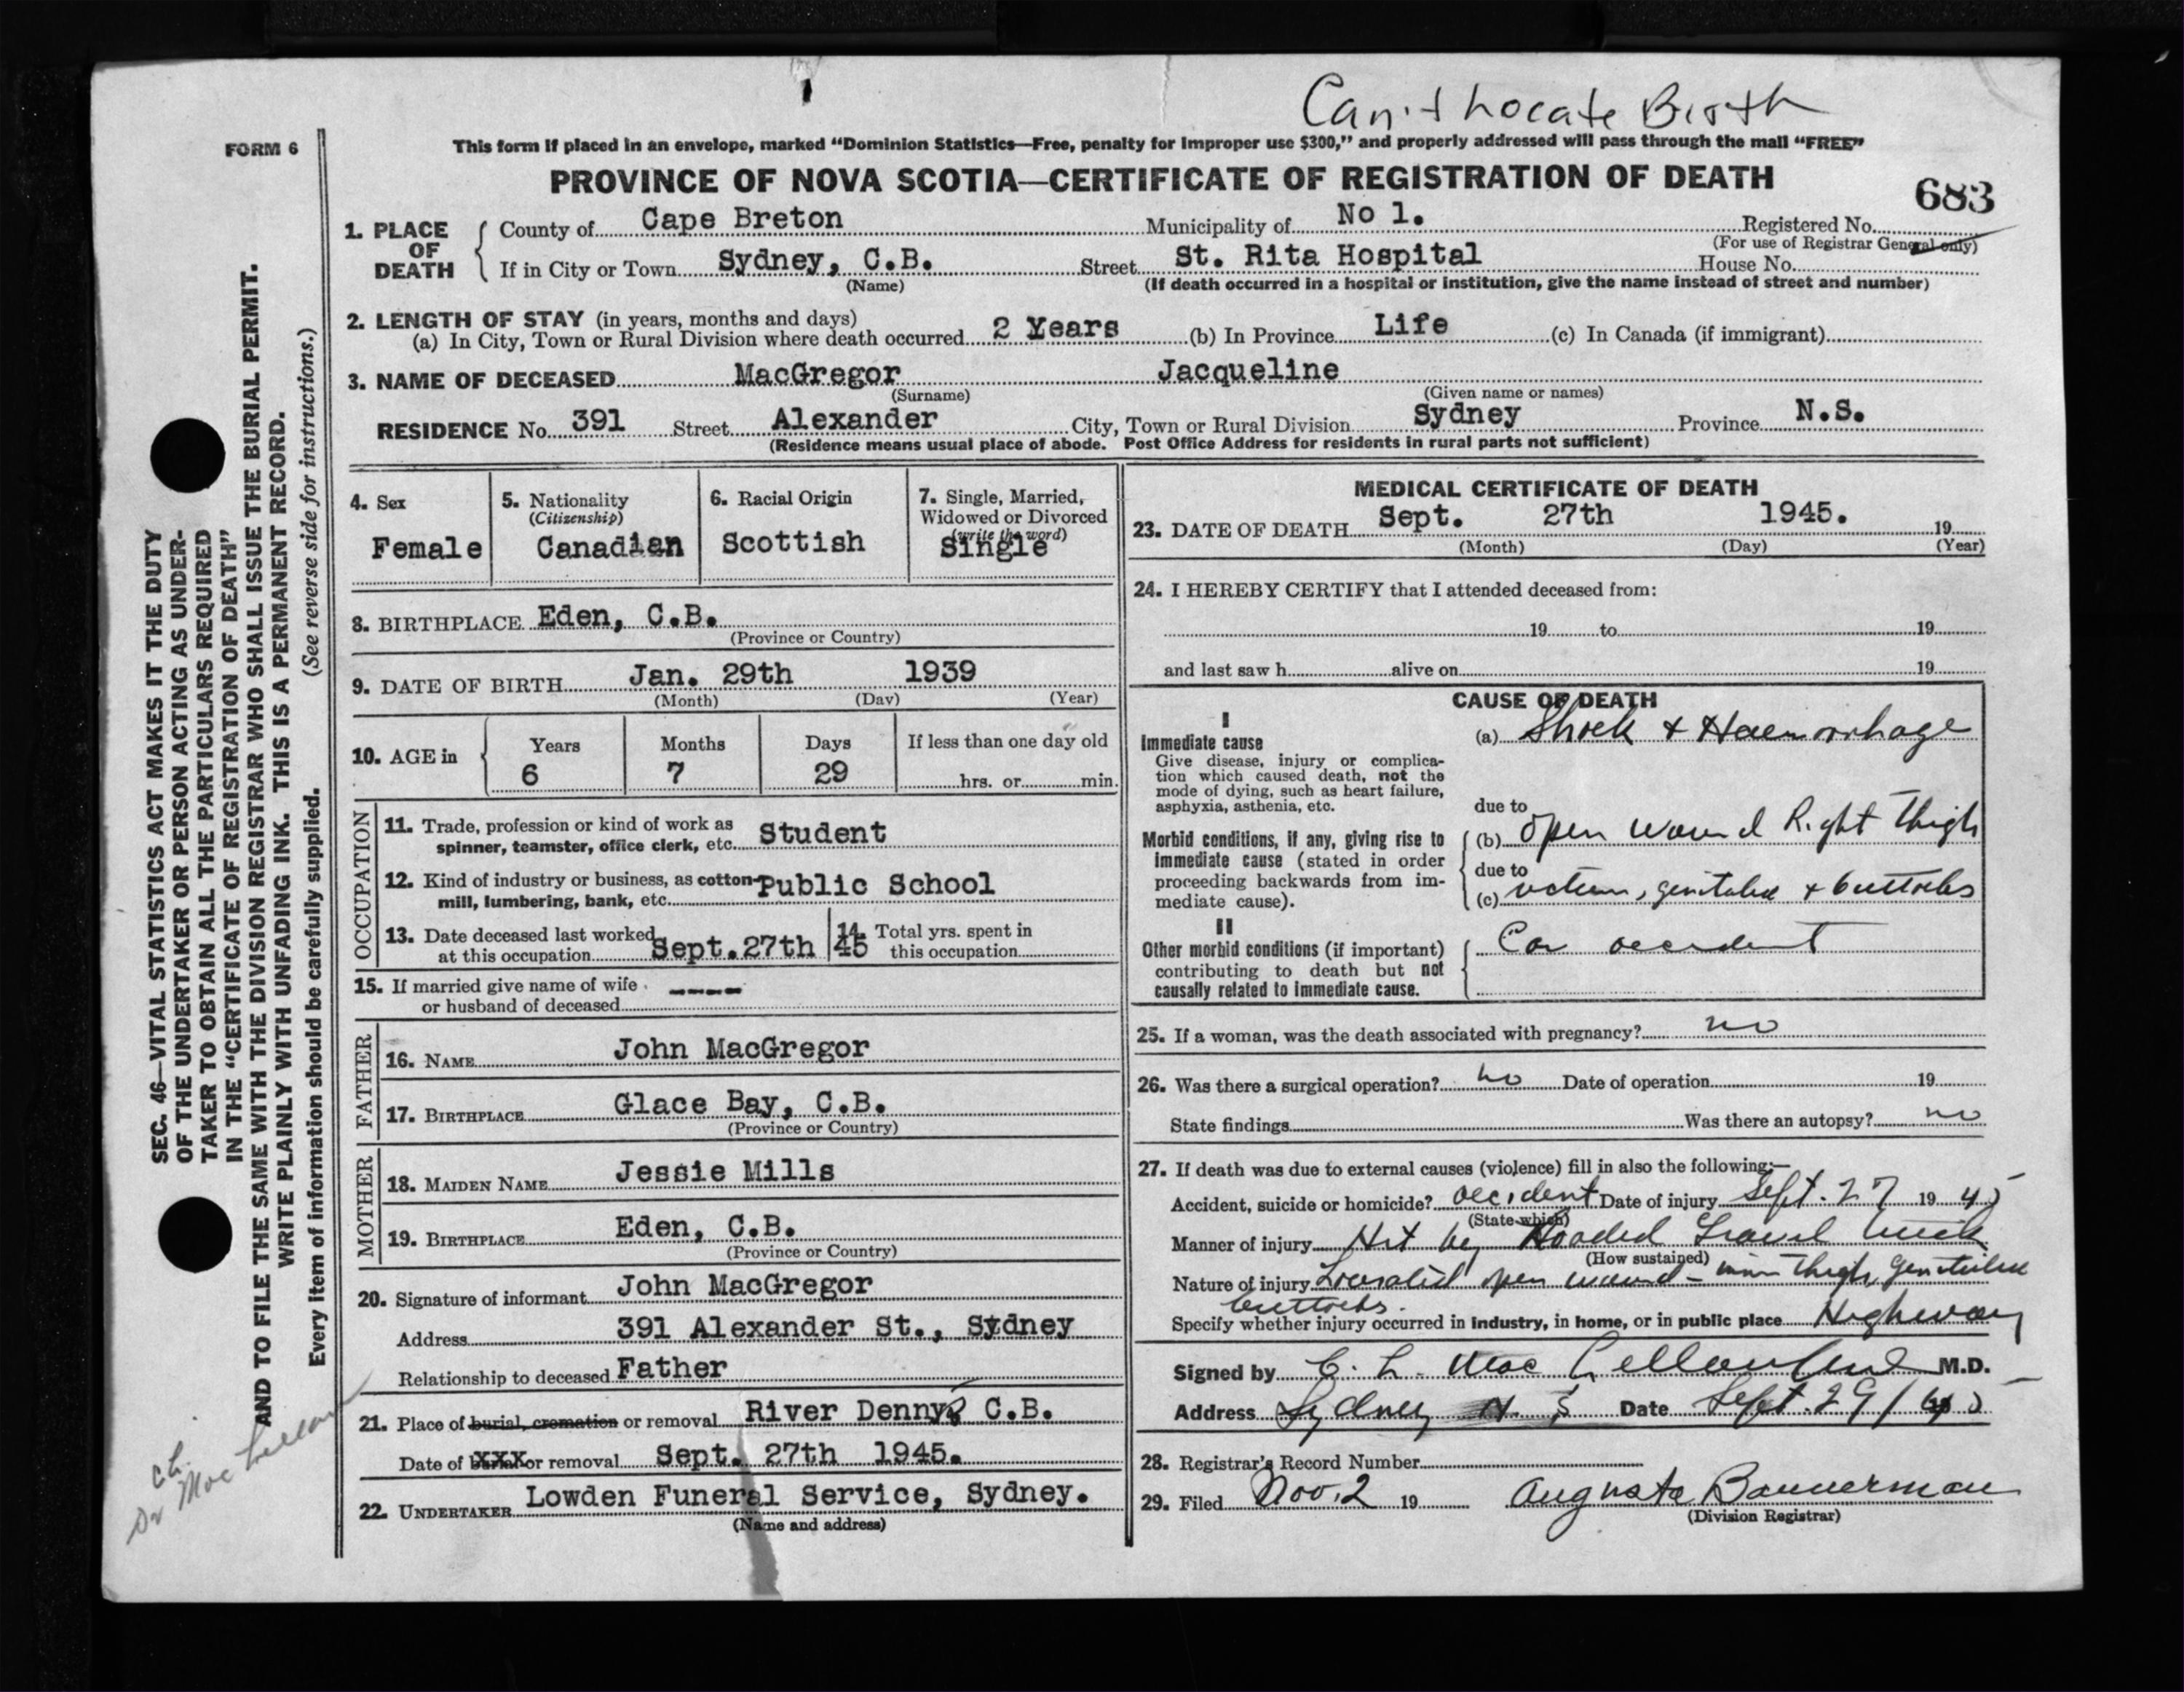 Can't Locate Birth
FORM 6
This form if placed in an envelope, marked "Dominion Statistics—Free, penalty for improper use $300," and properly addressed will pass through the mail "FREE"
PROVINCE OF NOVA SCOTIA—CERTIFICATE OF REGISTRATION OF DEATH
683
1. PLACE OF DEATH
County of Cape Breton Municipality of No 1. Registered No.
(For use of Registrar General only)
If in City or Town Sydney, C.B. Street St. Rita Hospital House No.
(Name) (If death occurred in a hospital or institution, give the name instead of street and number)
2. LENGTH OF STAY (in years, months and days)
(a) In City, Town or Rural Division where death occurred 2 Years (b) In Province Life (c) In Canada (if immigrant)
3. NAME OF DECEASED MacGregor Jacqueline
(Surname) (Given name or names)
RESIDENCE No. 391 Street Alexander City, Town or Rural Division Sydney Province N.S.
(Residence means usual place of abode. Post Office Address for residents in rural parts not sufficient)
4. Sex
Female
5. Nationality
(Citizenship)
Canadian
6. Racial Origin
Scottish
7. Single, Married,
Widowed or Divorced
(write the word)
Single
8. BIRTHPLACE Eden, C.B.
(Province or Country)
9. DATE OF BIRTH Jan. 29th 1939
(Month) (Day) (Year)
10. AGE in
Years Months Days If less than one day old
6 7 29 hrs. or min.
OCCUPATION
11. Trade, profession or kind of work as
spinner, teamster, office clerk, etc. Student
12. Kind of industry or business, as cotton-
mill, lumbering, bank, etc. Public School
13. Date deceased last worked
at this occupation Sept.27th 45
14. Total yrs. spent in
this occupation
15. If married give name of wife
or husband of deceased ----
FATHER
16. NAME John MacGregor
17. BIRTHPLACE Glace Bay, C.B.
(Province or Country)
MOTHER
18. MAIDEN NAME Jessie Mills
19. BIRTHPLACE Eden, C.B.
(Province or Country)
20. Signature of informant John MacGregor
Address 391 Alexander St., Sydney
Relationship to deceased Father
21. Place of burial, cremation or removal River Dennys C.B.
Date of burial or removal Sept. 27th 1945.
22. UNDERTAKER Lowden Funeral Service, Sydney.
(Name and address)
MEDICAL CERTIFICATE OF DEATH
23. DATE OF DEATH Sept. 27th 1945. 19
(Month) (Day) (Year)
24. I HEREBY CERTIFY that I attended deceased from:
19 to 19
and last saw h alive on 19
CAUSE OF DEATH
I
Immediate cause
Give disease, injury or complica-
tion which caused death, not the
mode of dying, such as heart failure,
asphyxia, asthenia, etc.
(a) Shock + Haemorrhage
due to
Morbid conditions, if any, giving rise to
immediate cause (stated in order
proceeding backwards from im-
mediate cause).
(b) Open wound Right thigh
due to
(c) genitalia + buttocks
II
Other morbid conditions (if important)
contributing to death but not
causally related to immediate cause.
Car accident
25. If a woman, was the death associated with pregnancy? no
26. Was there a surgical operation? no Date of operation 19
State findings Was there an autopsy? no
27. If death was due to external causes (violence) fill in also the following:—
Accident, suicide or homicide? accident Date of injury Sept. 27 1945
(State which)
Manner of injury Hit by loaded Gravel truck
(How sustained)
Nature of injury Lacerated open wound - inner thigh, genitalia
buttocks.
Specify whether injury occurred in industry, in home, or in public place Highway
Signed by C. L. MacLellan M.D.
Address Sydney N. S Date Sept. 29/45
28. Registrar's Record Number
29. Filed Nov. 2 19 Augusta Bannerman
(Division Registrar)
SEC. 46—VITAL STATISTICS ACT MAKES IT THE DUTY
OF THE UNDERTAKER OR PERSON ACTING AS UNDER-
TAKER TO OBTAIN ALL THE PARTICULARS REQUIRED
IN THE "CERTIFICATE OF REGISTRATION OF DEATH"
AND TO FILE THE SAME WITH THE DIVISION REGISTRAR WHO SHALL ISSUE THE BURIAL PERMIT.
WRITE PLAINLY WITH UNFADING INK. THIS IS A PERMANENT RECORD.
Every item of information should be carefully supplied. (See reverse side for instructions.)
CL.
Dr MacLellan